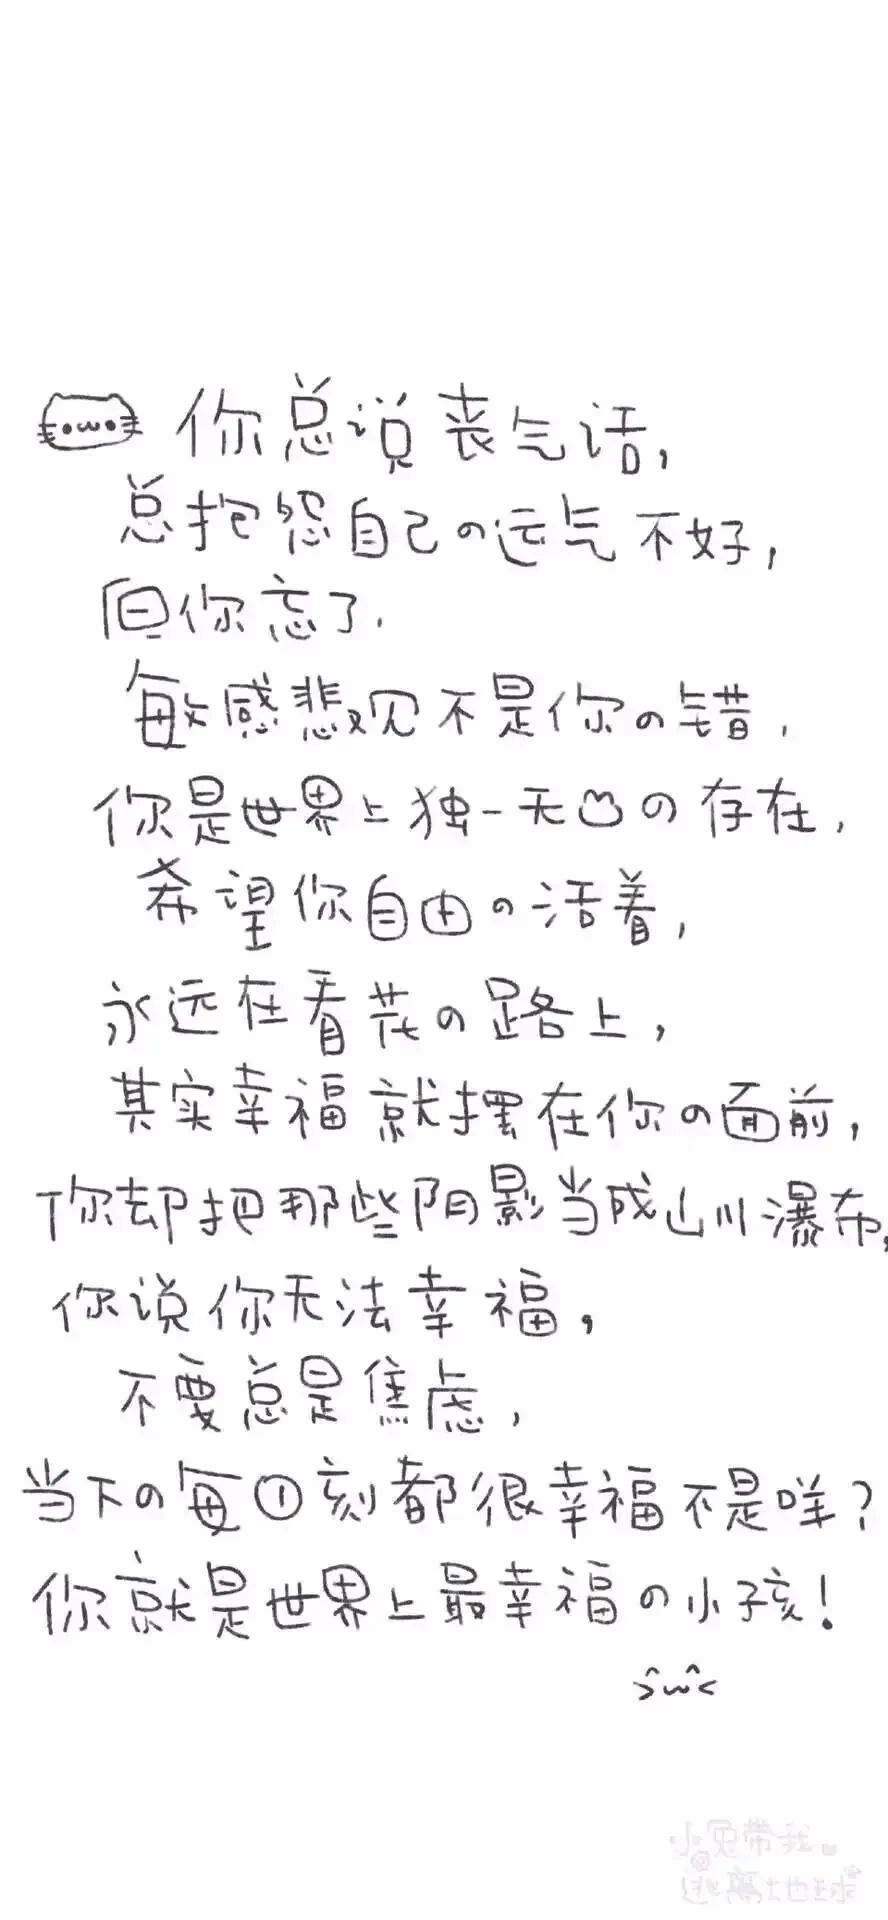 你总说丧气话,
总抱怨自己の运气不好,
但你忘了.
敏感悲观不是你の错.
你是世界上独一无の存在,
希望你自由の活着,
永远在看花の路上,
其实幸福就摆在你の面前,
你却把那些阴影当成山川瀑布,
你说你无法幸福,
不要总是焦虑,
当下の每①刻都很幸福不是咩?
你就是世界上最幸福の小孩!
小兔带我
逃离地球